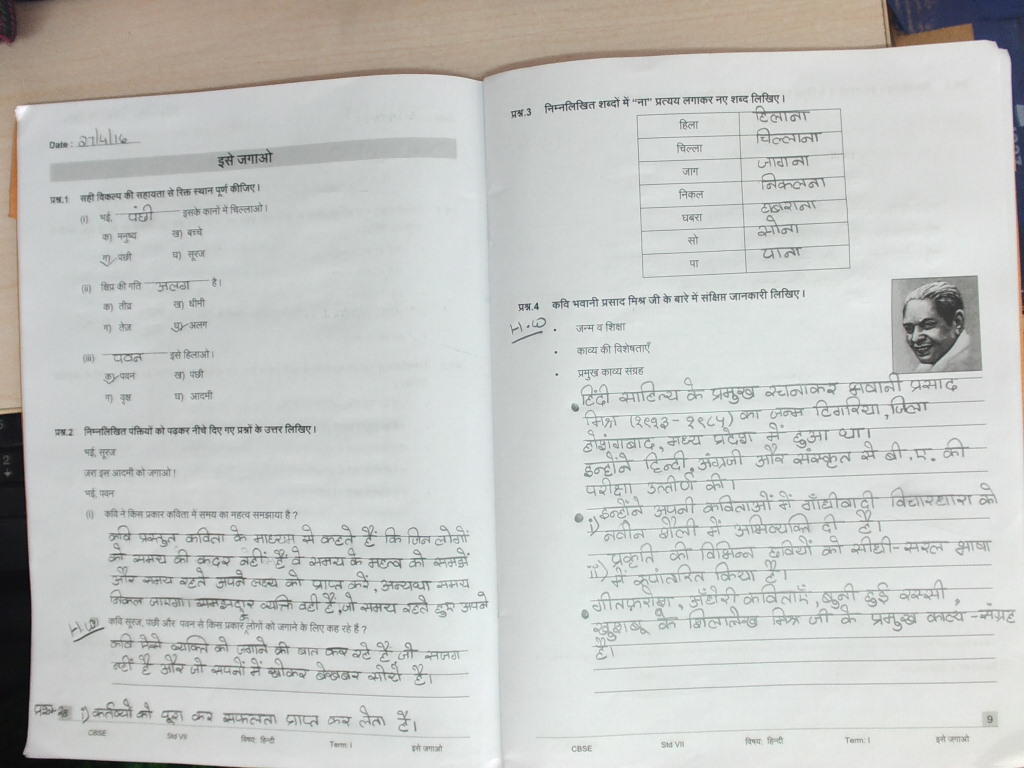 Date : 27/4/16
इसे जगाओ
प्रश्न.1 सही विकल्प की सहायता से रिक्त स्थान पूर्ण कीजिए।
(i) भई, पंछी इसके कानों में चिल्लाओ।
क) मनुष्य ख) बच्चे
ग) पंछी घ) सूरज
(ii) क्षिप्र की गति अलग है।
क) तीव्र ख) धीमी
ग) तेज घ) अलग
(iii) पवन इसे हिलाओ।
क) पवन ख) पंछी
ग) वृक्ष घ) आदमी
प्रश्न.2 निम्नलिखित पंक्तियों को पढ़कर नीचे दिए गए प्रश्नों के उत्तर लिखिए।
भई, सूरज
ज़रा इस आदमी को जगाओ !
भई, पवन
(i) कवि ने किस प्रकार कविता में समय का महत्व समझाया है ?
कवि प्रस्तुत कविता के माध्यम से कहते हैं कि जिन लोगों
को समय की कदर नहीं है वे समय के महत्व को समझें
और समय रहते अपने लक्ष्य को प्राप्त करें, अन्यथा समय
निकल जाएगा। समझदार व्यक्ति वही है, जो समय रहते हुए अपने
H.W कवि सूरज, पंछी और पवन से किस प्रकार के लोगों को जगाने के लिए कह रहे है ?
कवि ऐसे व्यक्ति को जगाने की बात कर रहे है जो सजग
नहीं है और जो सपनों में खोकर बेखबर सोये है।
i) कर्तव्यों को पूरा कर सफलता प्राप्त कर लेता है।
CBSE Std VII विषय: हिन्दी Term: I इसे जगाओ
प्रश्न.3 निम्नलिखित शब्दों में "ना" प्रत्यय लगाकर नए शब्द लिखिए।
हिला हिलाना
चिल्ला चिल्लाना
जाग जागना
निकल निकलना
घबरा घबराना
सो सोना
पा पाना
प्रश्न.4 कवि भवानी प्रसाद मिश्र जी के बारे में संक्षिप्त जानकारी लिखिए।
H.W • जन्म व शिक्षा
• काव्य की विशेषताएँ
• प्रमुख काव्य संग्रह
• हिंदी साहित्य के प्रमुख रचनाकर भवानी प्रसाद
मिश्रा (१९१३ - १९८५) का जन्म टिगरिया, जिला
होशंगाबाद, मध्य प्रदेश में हुआ था।
इन्होंने हिन्दी, अंग्रजी और संस्कृत से बी.ए. की
परीक्षा उत्तीर्ण की।
• i) इन्होंने अपनी कविताओं में गाँधीवादी विचारधारा को
नवीन शैली में अभिव्यक्ति दी है।
ii) प्रकृति की विभिन्न छवियों को सीधी-सरल भाषा
में रूपांतरित किया है।
• गीतफ़रोश, अँधेरी कविताएँ, बुनी हुई रस्सी,
खुशबू के शिलालेख मिश्र जी के प्रमुख काव्य-संग्रह
है।
9
CBSE Std VII विषय: हिन्दी Term: I इसे जगाओ